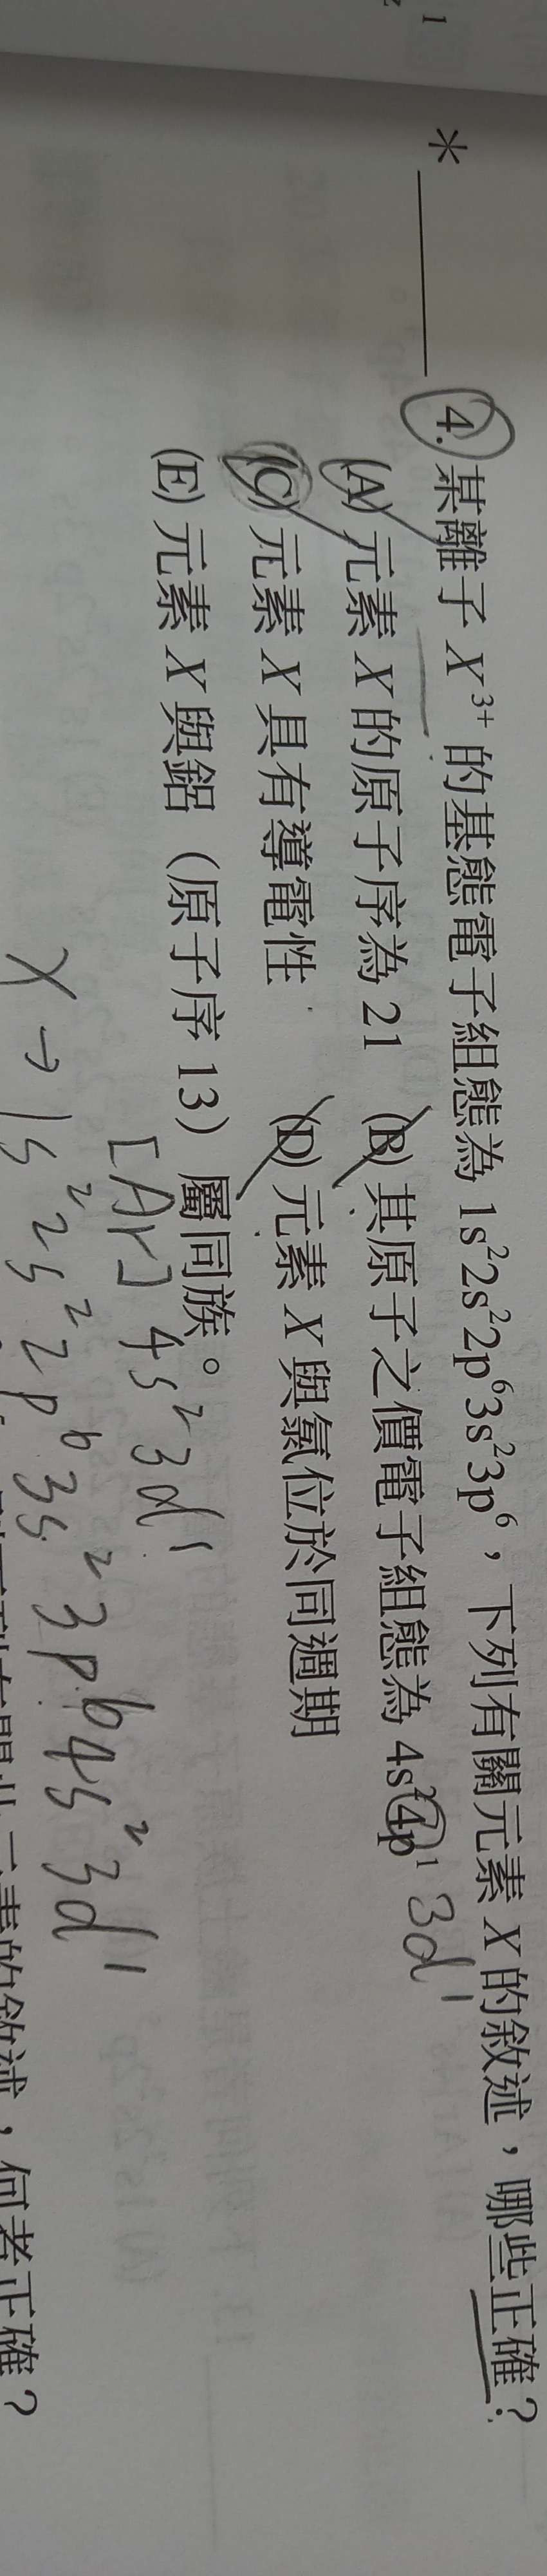 1
* ____ 4. 某離子 X³⁺ 的基態電子組態為 1s²2s²2p⁶3s²3p⁶，下列有關元素 X 的敘述，哪些正確？
(A) 元素 X 的原子序為 21 (B) 其原子之價電子組態為 4s²4p¹ 3d¹
(C) 元素 X 具有導電性 (D) 元素 X 與氯位於同週期
(E) 元素 X 與鋁（原子序 13）屬同族。
[Ar] 4s² 3d¹
X → 1s² 2s² 2p⁶ 3s² 3p⁶ 4s² 3d¹
的敘述，何者正確？